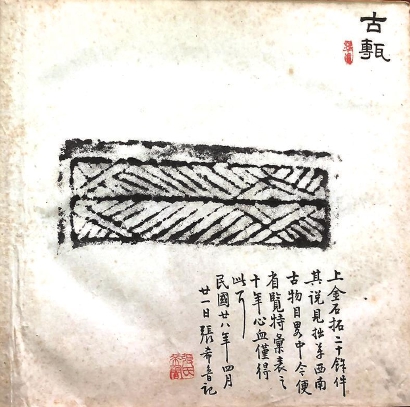 古甎
上金石拓二十餘件
其說見拙著西南
古物目畧中今便
省覽特彙表之
十年心血僅得
此耳
民國廿八年四月
廿一日張希魯記